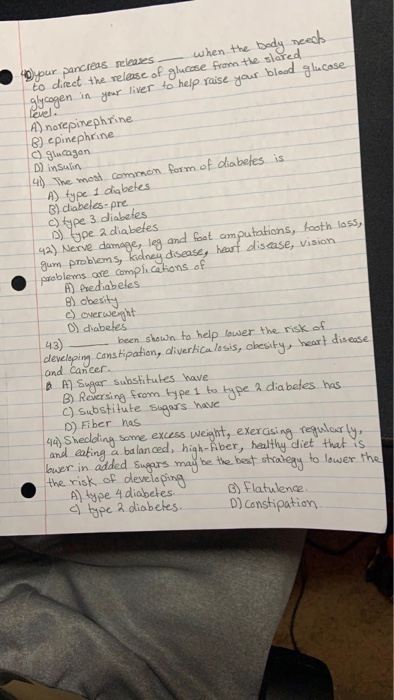 40) your pancreas releases ____ when the body needs
to direct the release of glucose from the stored
glycogen in your liver to help raise your blood glucose
level.
A) norepinephrine
B) epinephrine
C) glucagon
D) insulin
41) The most common form of diabetes is
A) type 1 diabetes
B) diabetes-pre
C) type 3 diabetes
D) type 2 diabetes
42) Nerve damage, leg and foot amputations, tooth loss,
gum problems, kidney disease, heart disease, vision
problems are complications of
A) Prediabetes
B) obesity
C) overweight
D) diabetes
43) ____ been shown to help lower the risk of
developing constipation, diverticulosis, obesity, heart disease
and cancer.
A) Sugar substitutes have
B) Reversing from type 1 to type 2 diabetes has
C) substitute sugars have
D) Fiber has
44) Shedding some excess weight, exercising regularly,
and eating a balanced, high-fiber, healthy diet that is
lower in added sugars may be the best strategy to lower the
the risk of developing
A) type 4 diabetes. B) flatulence.
C) type 2 diabetes. D) Constipation.